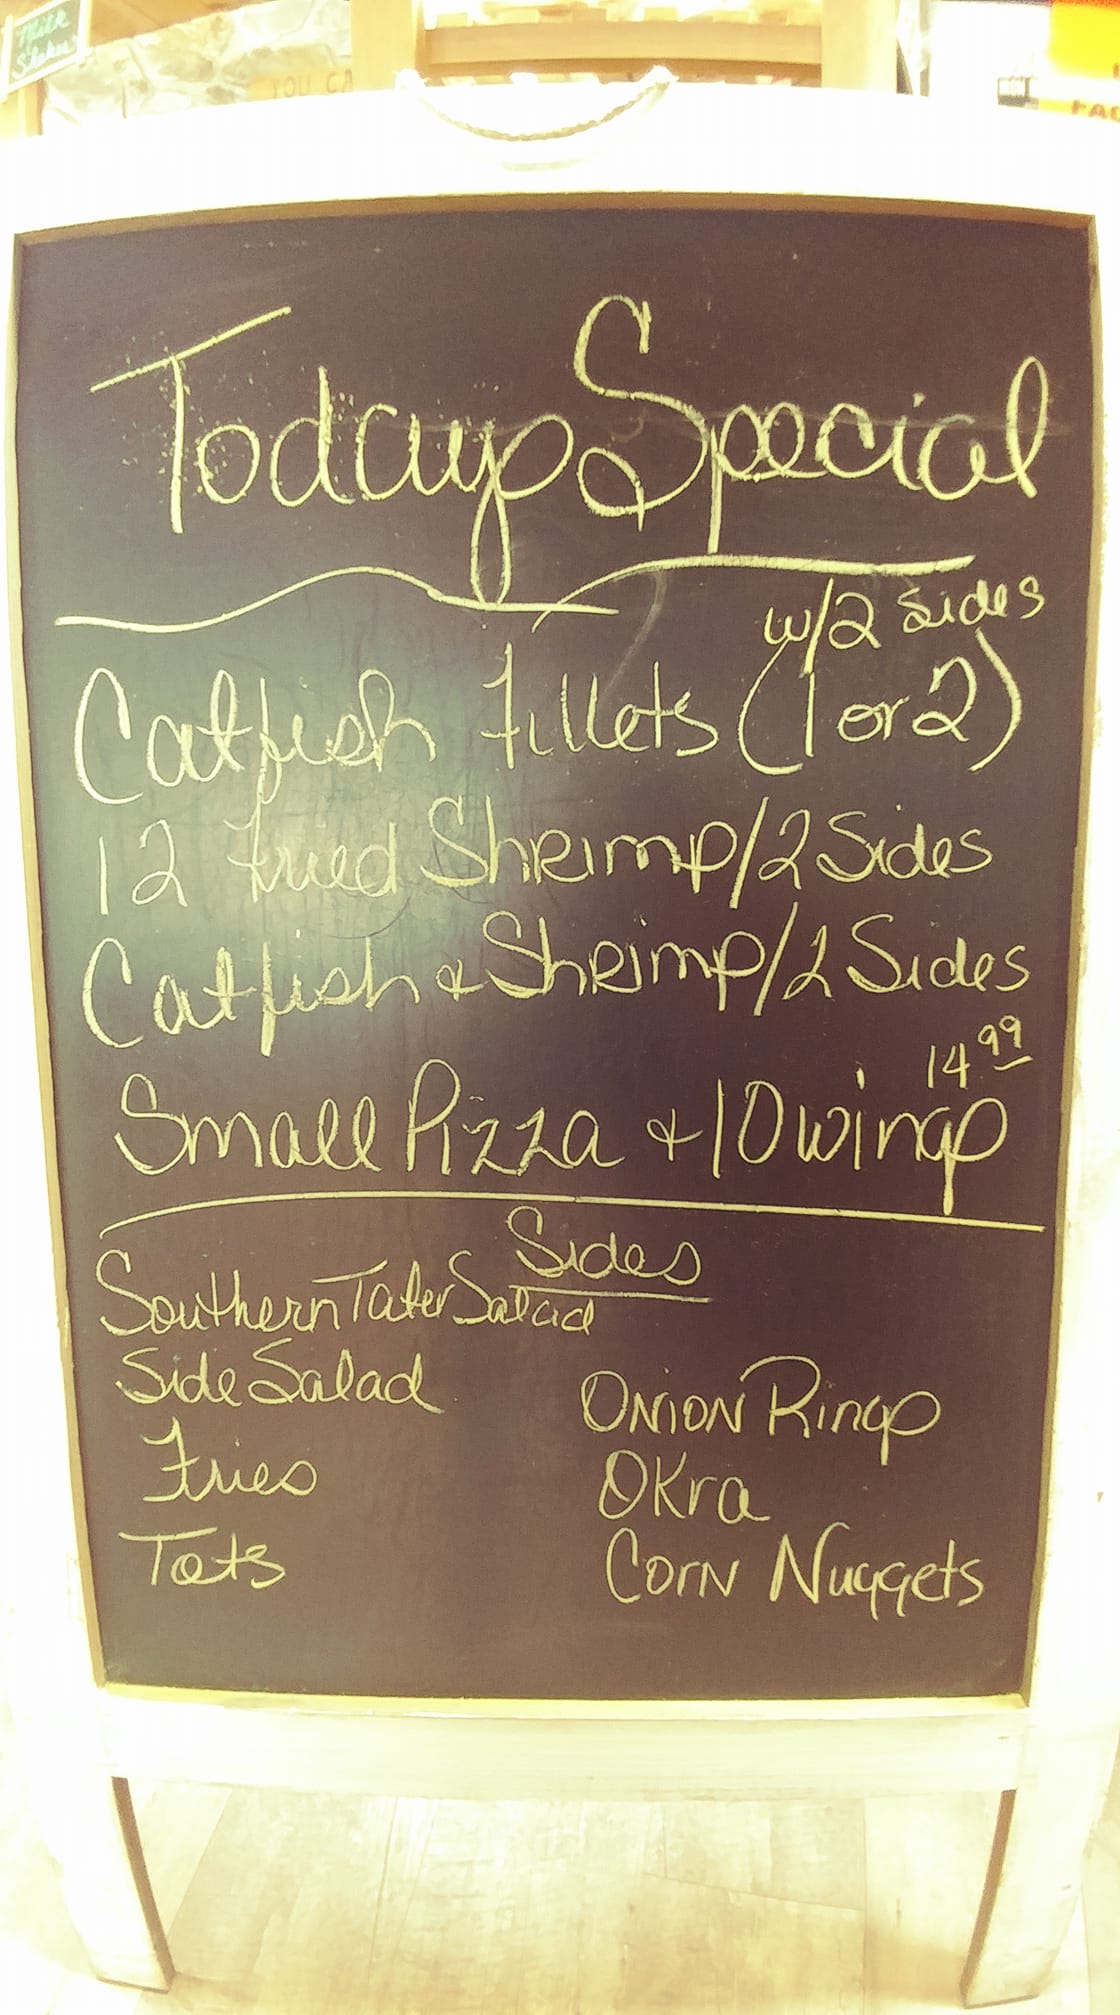 Milk
Shakes
YOU CA
Todays Special
w/2 Sides
Catfish Fillets (1 or 2)
12 Fried Shrimp/2 Sides
Catfish & Shrimp/2 Sides
14.99
Small Pizza & 10 wings
Sides
Southern Tater Salad
Side Salad
Onion Rings
Fries
Okra
Tots
Corn Nuggets